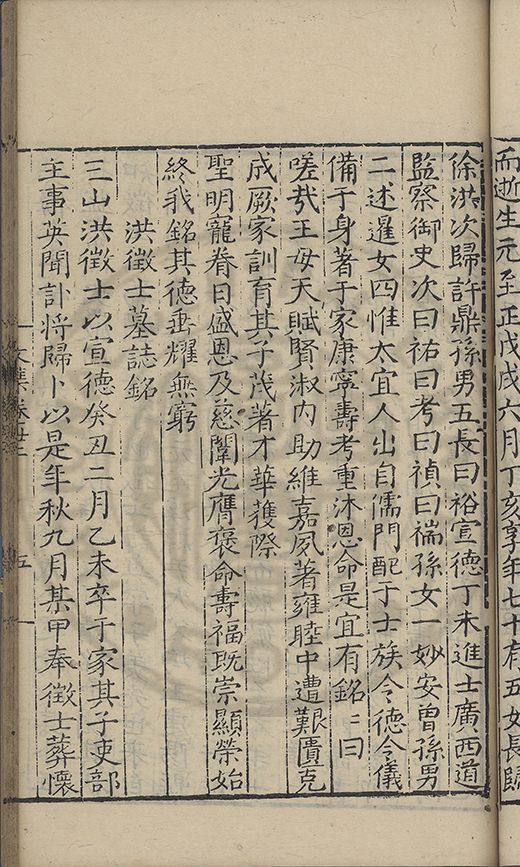 而逝生元至正戊戌六月丁亥享年七十有五女長歸
徐洪次歸許鼎孫男五長曰裕宣德丁未進士廣西道
監察御史次曰祐曰考曰禎曰㒓孫女一妙安曾孫男
二述暹女四惟太宜人出自儒門配于士族令德令儀
備于身著于家康寧壽考重沐恩命是宜有銘銘曰
嗟㢤王母天賦賢淑内助維嘉夙著雍睦中遭艱匱克
成厥家訓育其子茂著才華獲際
聖明寵眷日盛恩及慈闈光膺褒命壽福既崇顯榮始
終我銘其德垂耀無窮
洪徵士墓誌銘
三山洪徵士以宣德癸丑二月乙未卒于家其子吏部
主事英聞訃將歸卜以是年秋九月某甲奉徵士葬懷
文集卷
五